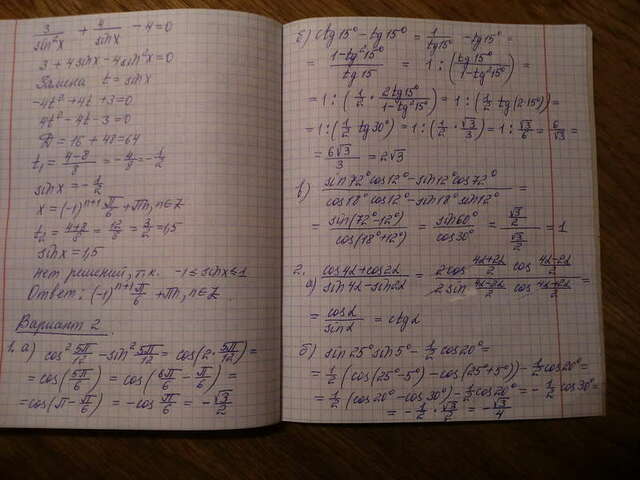 3/sin²x + 4/sinx - 4 = 0
3 + 4sinx - 4sin²x = 0
Замена t = sinx
-4t² + 4t + 3 = 0
4t² - 4t - 3 = 0
D = 16 + 48 = 64
t₁ = (4-8)/8 = -4/8 = -1/2
sinx = -1/2
x = (-1)ⁿ⁺¹ π/6 + πn, n∈Z
t₂ = (4+8)/8 = 12/8 = 3/2 = 1,5
sinx = 1,5
нет решений, т.к. -1 ≤ sinx ≤ 1
Ответ: (-1)ⁿ⁺¹ π/6 + πn, n∈Z.
Вариант 2
1. а) cos² 5π/12 - sin² 5π/12 = cos(2·5π/12) =
= cos(5π/6) = cos(6π/6 - π/6) =
= cos(π - π/6) = -cos π/6 = -√3/2
б) ctg15° - tg15° = 1/tg15° - tg15° =
= (1-tg²15°)/tg15 = 1 : (tg15°/(1-tg²15°)) =
= 1 : (1/2 · 2tg15°/(1-tg²15°)) = 1 : (1/2 tg(2·15°)) =
= 1 : (1/2 tg30°) = 1 : (1/2 · √3/3) = 1 : √3/6 = 6/√3 =
= 6√3/3 = 2√3
в) (sin72°cos12° - sin12°cos72°)/(cos18°cos12° - sin18°sin12°) =
= sin(72°-12°)/cos(18°+12°) = sin60°/cos30° = (√3/2)/(√3/2) = 1
2.
а) (cos4α + cos2α)/(sin4α - sin2α) = (2cos (4α+2α)/2 cos (4α-2α)/2)/(2sin (4α-2α)/2 cos (4α+2α)/2) =
= cosα/sinα = ctgα
б) sin25°sin5° - 1/2 cos20° =
= 1/2 (cos(25°-5°) - cos(25°+5°)) - 1/2 cos20° =
= 1/2 (cos20° - cos30°) - 1/2 cos20° = -1/2 cos30° =
= -1/2 · √3/2 = -√3/4